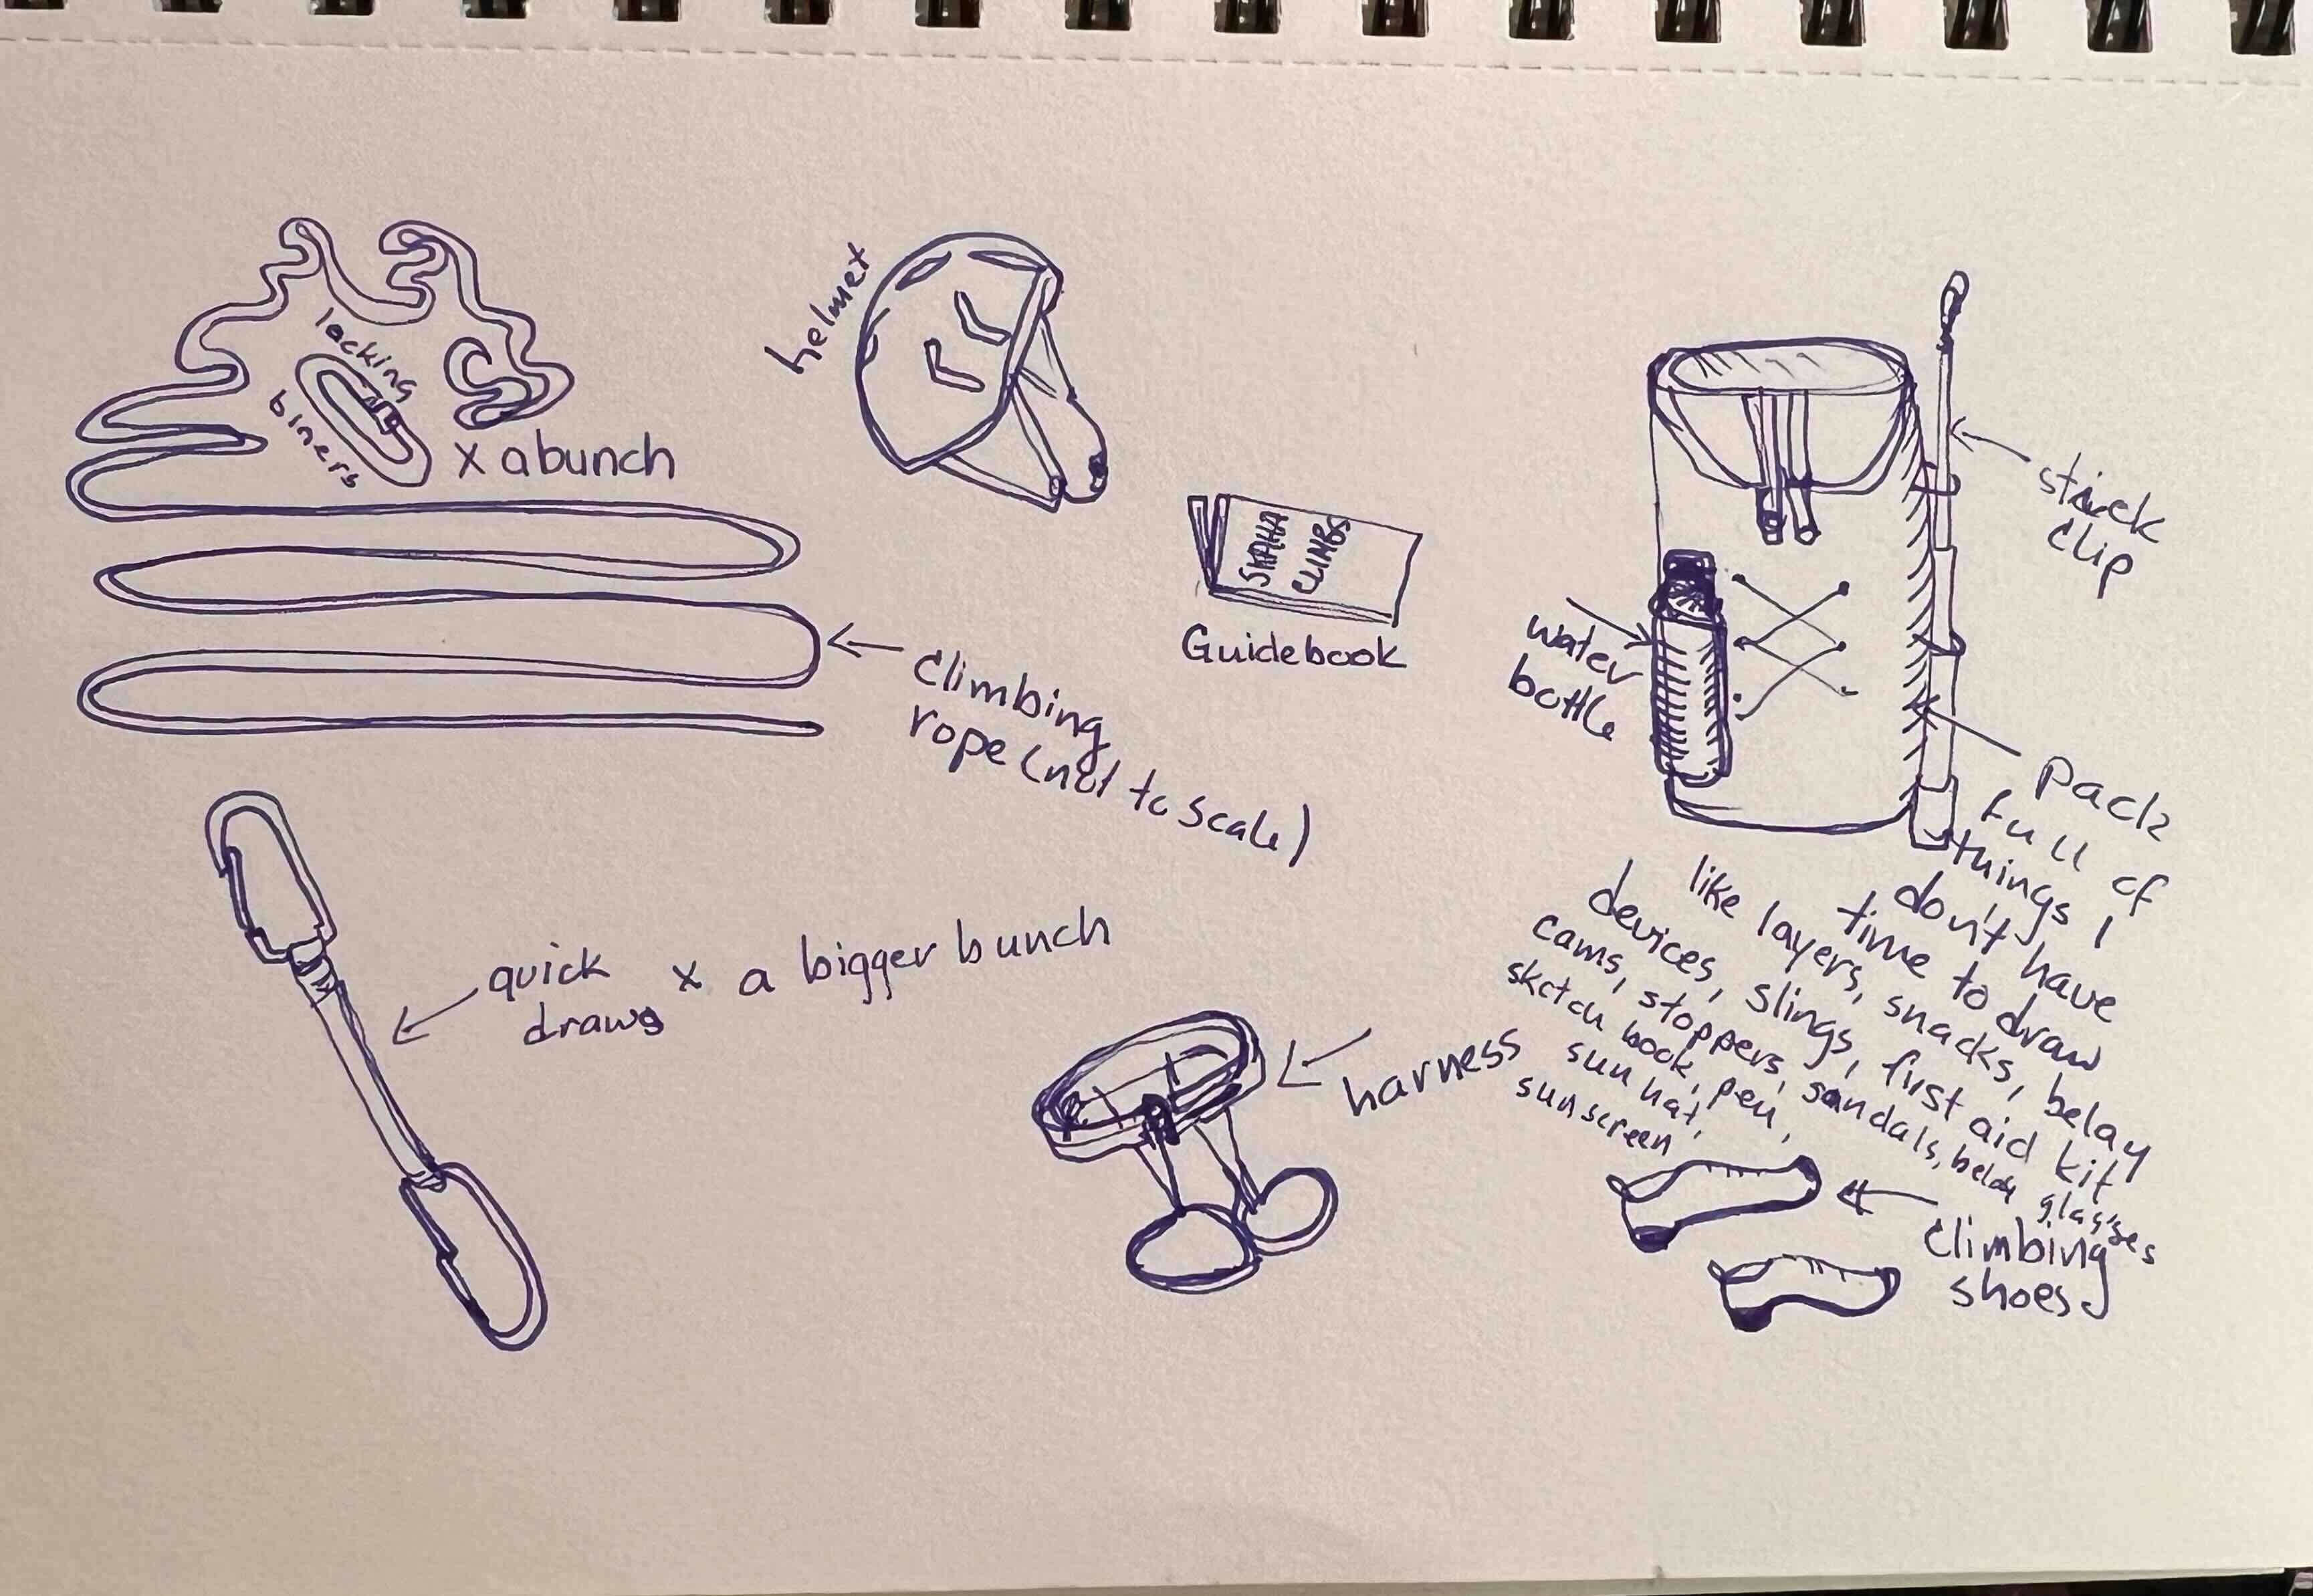 locking
biners
x a bunch
helmet
SKAHA
CLIMBS
Guidebook
climbing
rope (not to scale)
stick
clip
water
bottle
pack
full of
things I
don't have
time to draw
like layers, snacks, belay
devices, slings, first aid kit
cams, stoppers, sandals, belay glasses
sketch book, pen,
sun hat,
sunscreen
quick x a bigger bunch
draws
harness
climbing
shoes